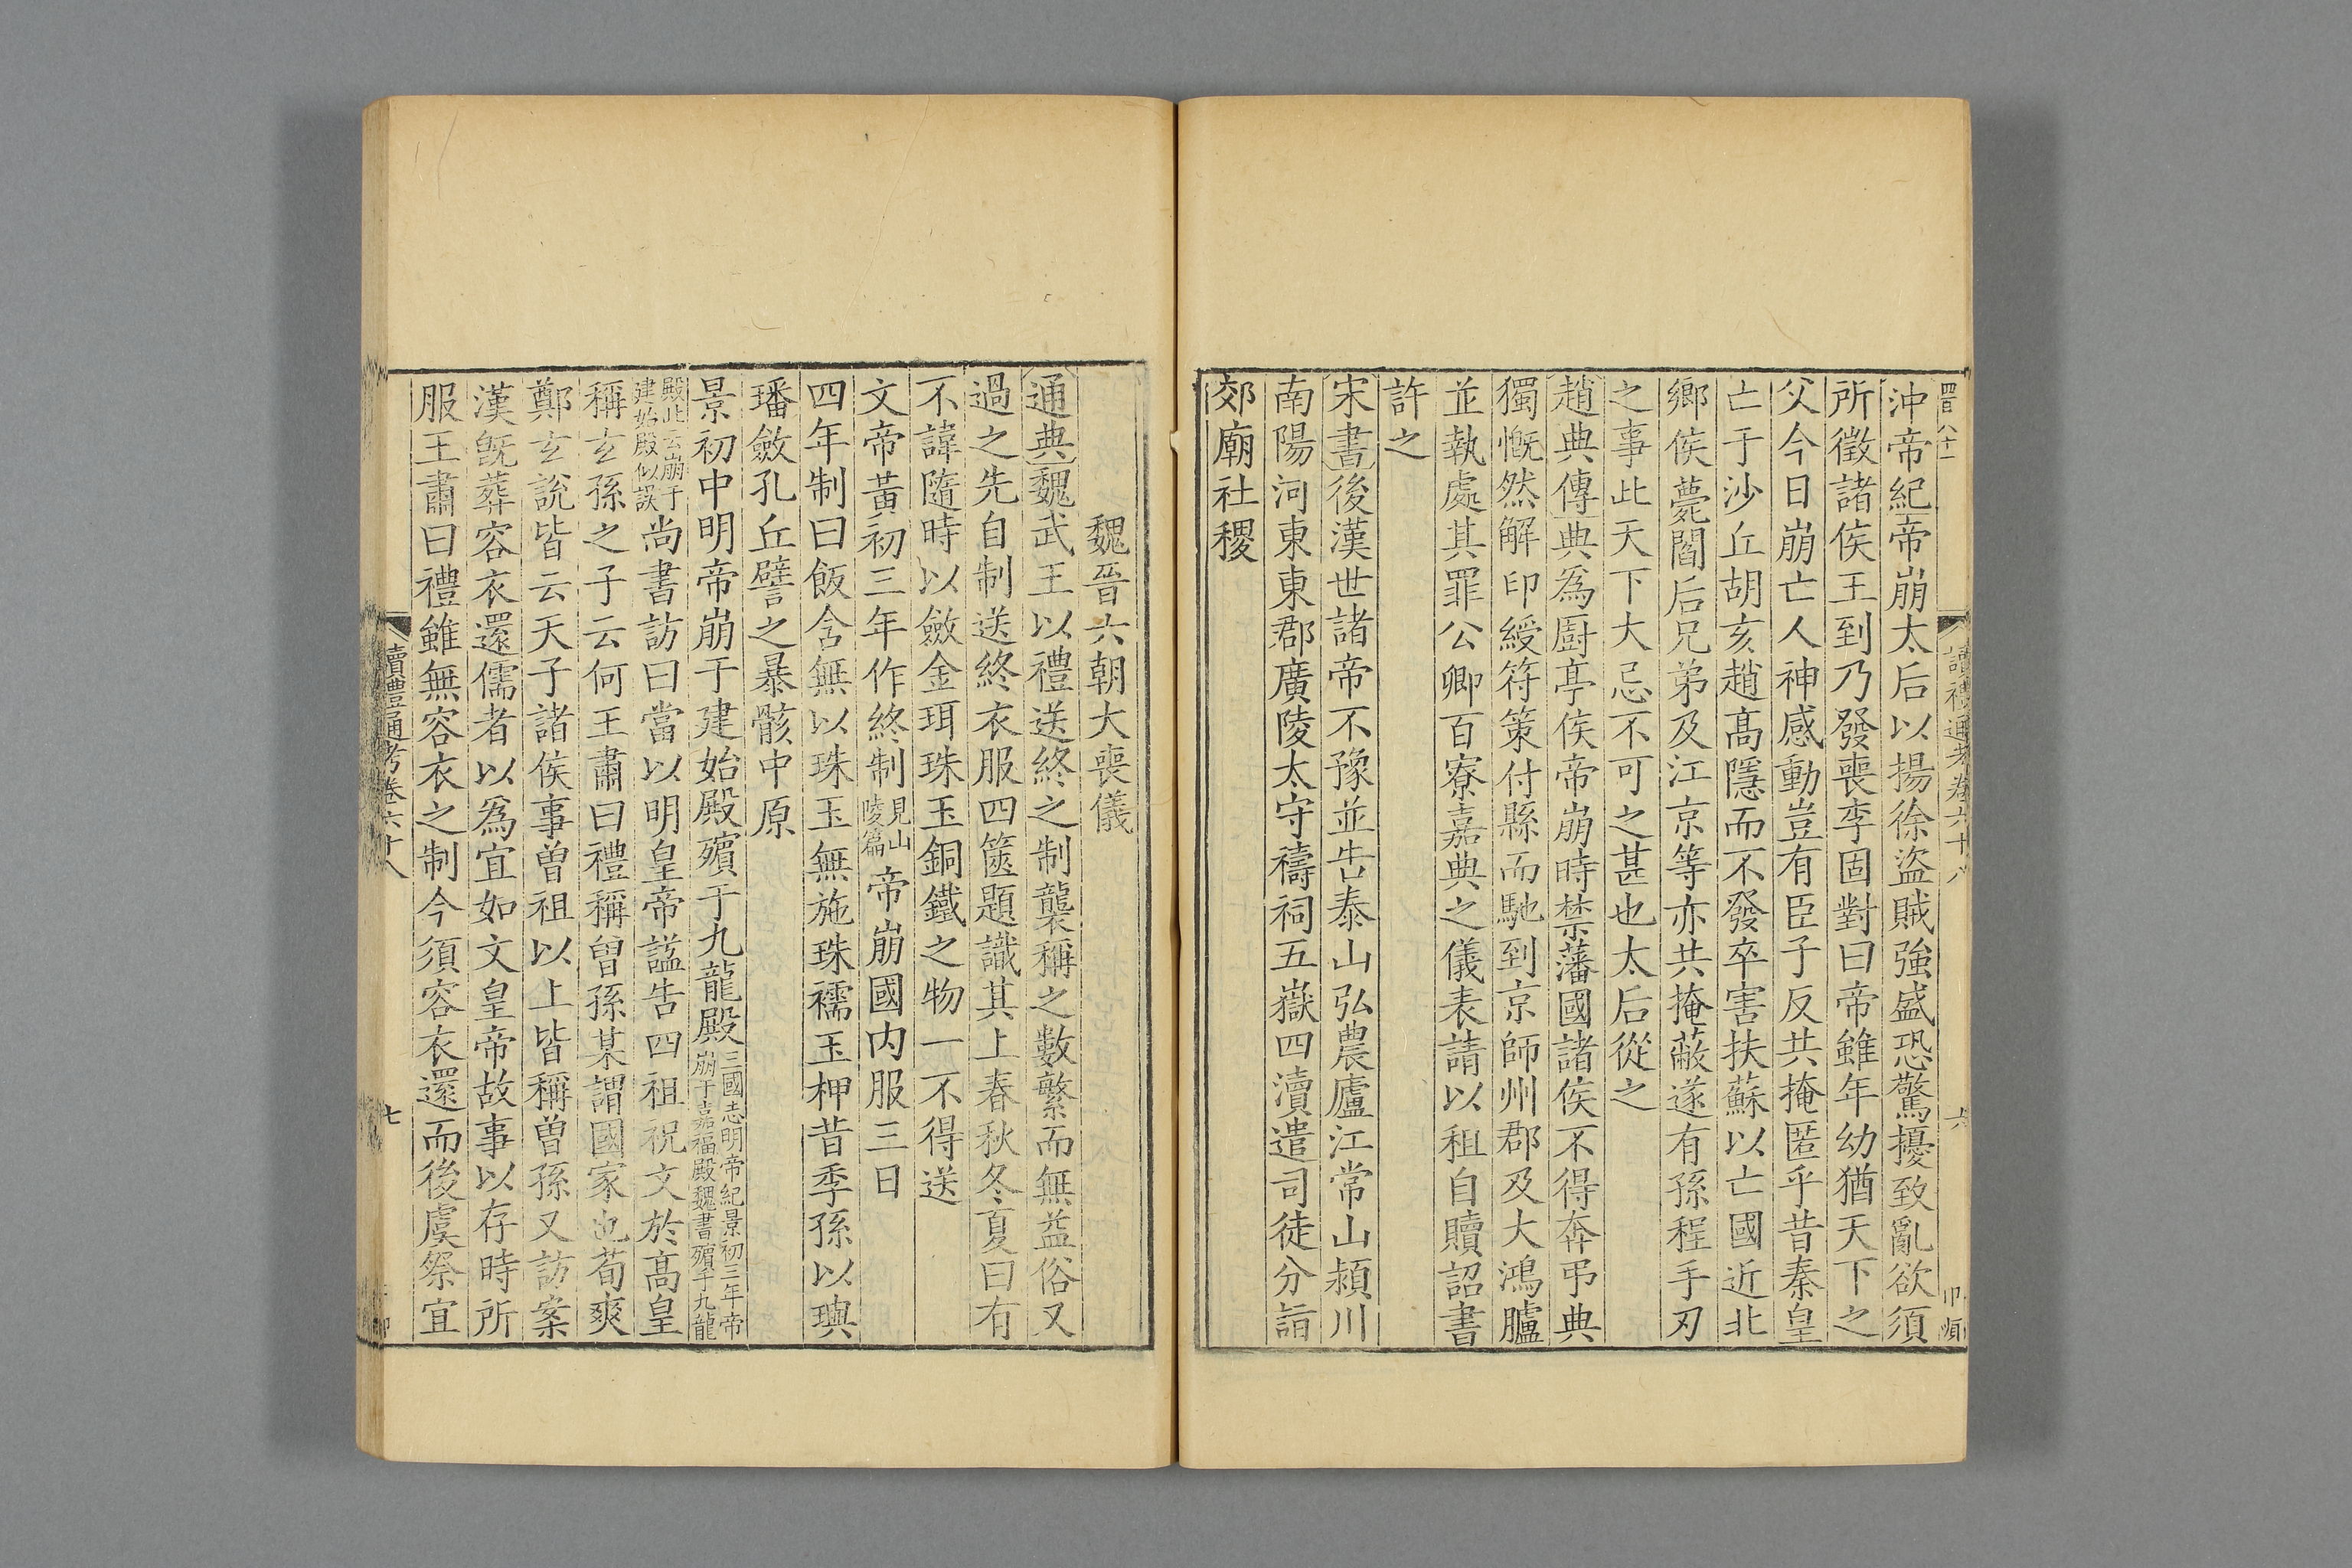 四百八十一
讀禮通考卷六十八
六
沖帝紀帝崩太后以揚徐盜賊強盛恐驚擾致亂欲須
所徵諸侯王到乃發喪李固對曰帝雖年幼猶天下之
父今日崩亡人神感動豈有臣子反共掩匿乎昔秦皇
亡于沙丘胡亥趙高隱而不發卒害扶蘇以亡國近北
鄉侯薨閻后兄弟及江京等亦共掩蔽遂有孫程手刃
之事此天下大忌不可之甚也太后從之
趙典傳典爲廚亭侯帝崩時禁藩國諸侯不得奔弔典
獨慨然解印綬符策付縣而馳到京師州郡及大鴻臚
並執處其罪公卿百寮嘉典之儀表請以租自贖詔書
許之
宋書後漢世諸帝不豫並告泰山弘農廬江常山潁川
南陽河東東郡廣陵太守禱祠五嶽四瀆遣司徒分詣
郊廟社稷
魏晉六朝大喪儀
通典魏武王以禮送終之制襲稱之數繁而無益俗又
過之先自制送終衣服四篋題識其上春秋冬夏曰有
不諱隨時以斂金珥珠玉銅鐵之物一不得送
文帝黃初三年作終制見山陵篇帝崩國内服三日
四年制曰飯含無以珠玉無施珠襦玉柙昔季孫以璵
璠斂孔丘譬之暴骸中原
景初中明帝崩于建始殿殯于九龍殿三國志明帝紀景初三年帝崩于嘉福殿魏書殯于九龍
殿此云崩于建始殿似誤尚書訪曰當以明皇帝諡告四祖祝文於高皇
稱玄孫之子云何王肅曰禮稱曾孫某謂國家也荀爽
鄭玄說皆云天子諸侯事曾祖以上皆稱曾孫又訪案
漢旣葬容衣還儒者以爲宜如文皇帝故事以存時所
服王肅曰禮雖無容衣之制今須容衣還而後虞祭宜
讀禮通考卷六十八
七